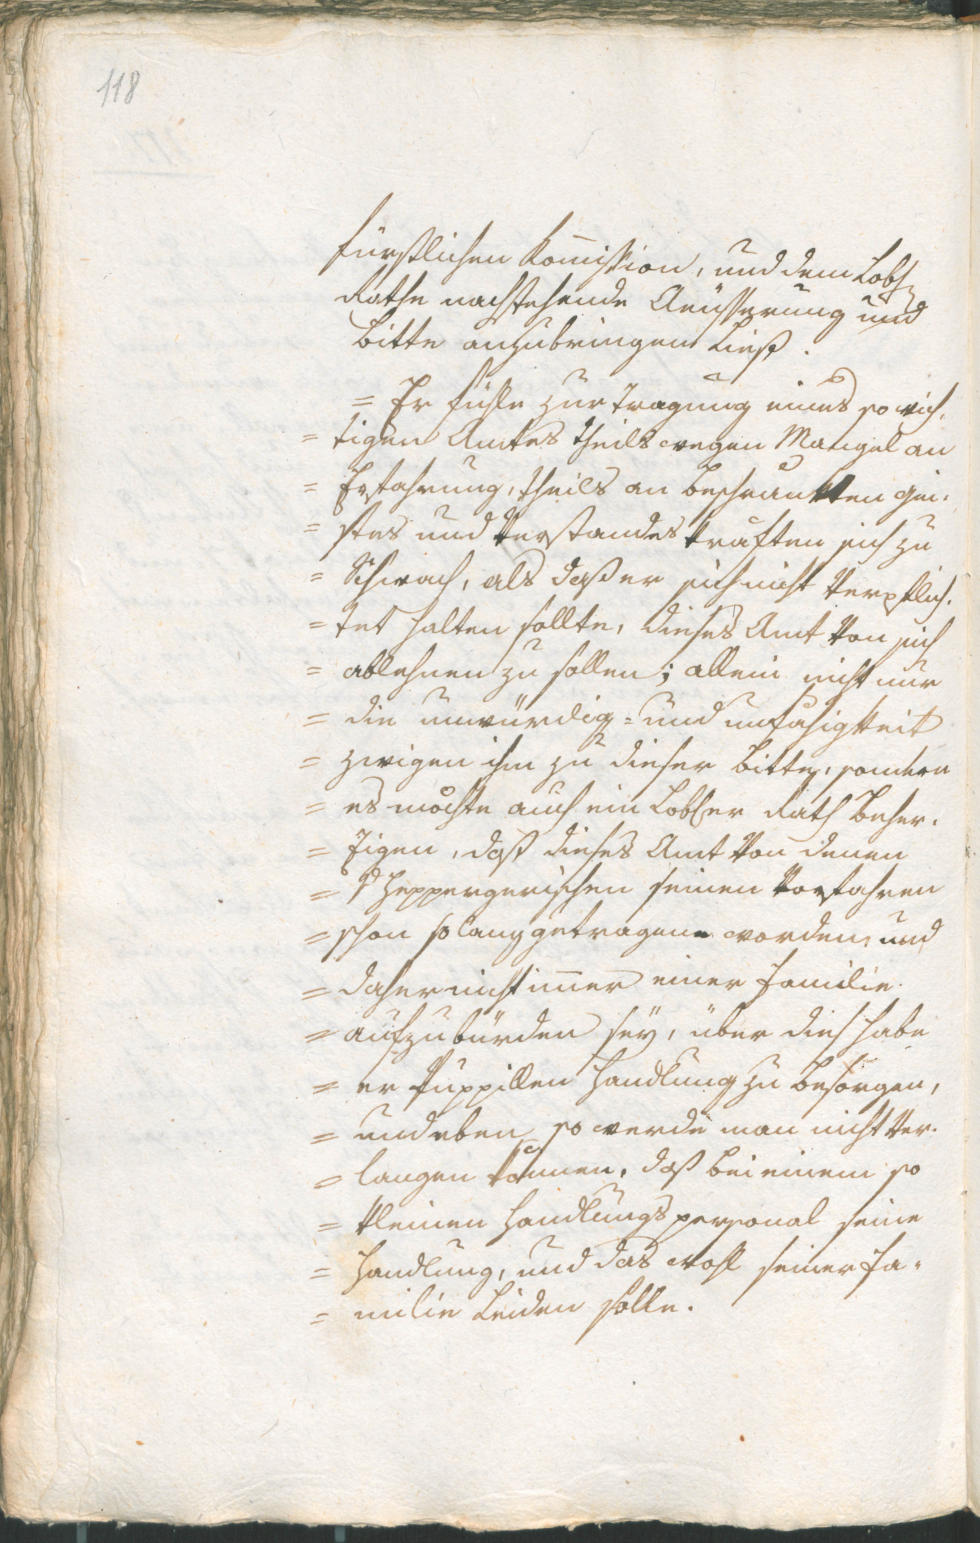 118
fürstlichen Kom̄ission, und dem Lobl:
Rathe nachstehende Aeüsserung und
Bitte anzubringen ließ.
= Er fühle zur Tragung eines so wich„
= tigen Amtes theils wegen Mangel an
= Erfahrung, theils an beschränkten Gei„
= stes und Verstandes kräften sich zu
= Schwach, als daß er sich nicht Verpflich„
= tet halten sollte, dieses Amt Von sich
= ablehnen zu sollen; allein nicht nur
= die unwürdig= und unfähigkeit
= zwigen ihn zu dieser Bitte, sondern
= es möchte auch ein Lobl:er Rath Beher„
= zigen, daß dieses Amt Von denen
= Heppergerischen seinen Vorfahren
= schon so lang getragen worden, und
= daher nicht im̄er einer Familie
= aufzubürden seÿ, über dieß habe
= er Puppillen Handlung zu besorgen,
= und eben so werde man nicht Ver„
= langen können, daß bei einem so
= kleinen Handlungs personal seine
= Handlung, und das wohl seiner Fa„
= milie Leiden solle.